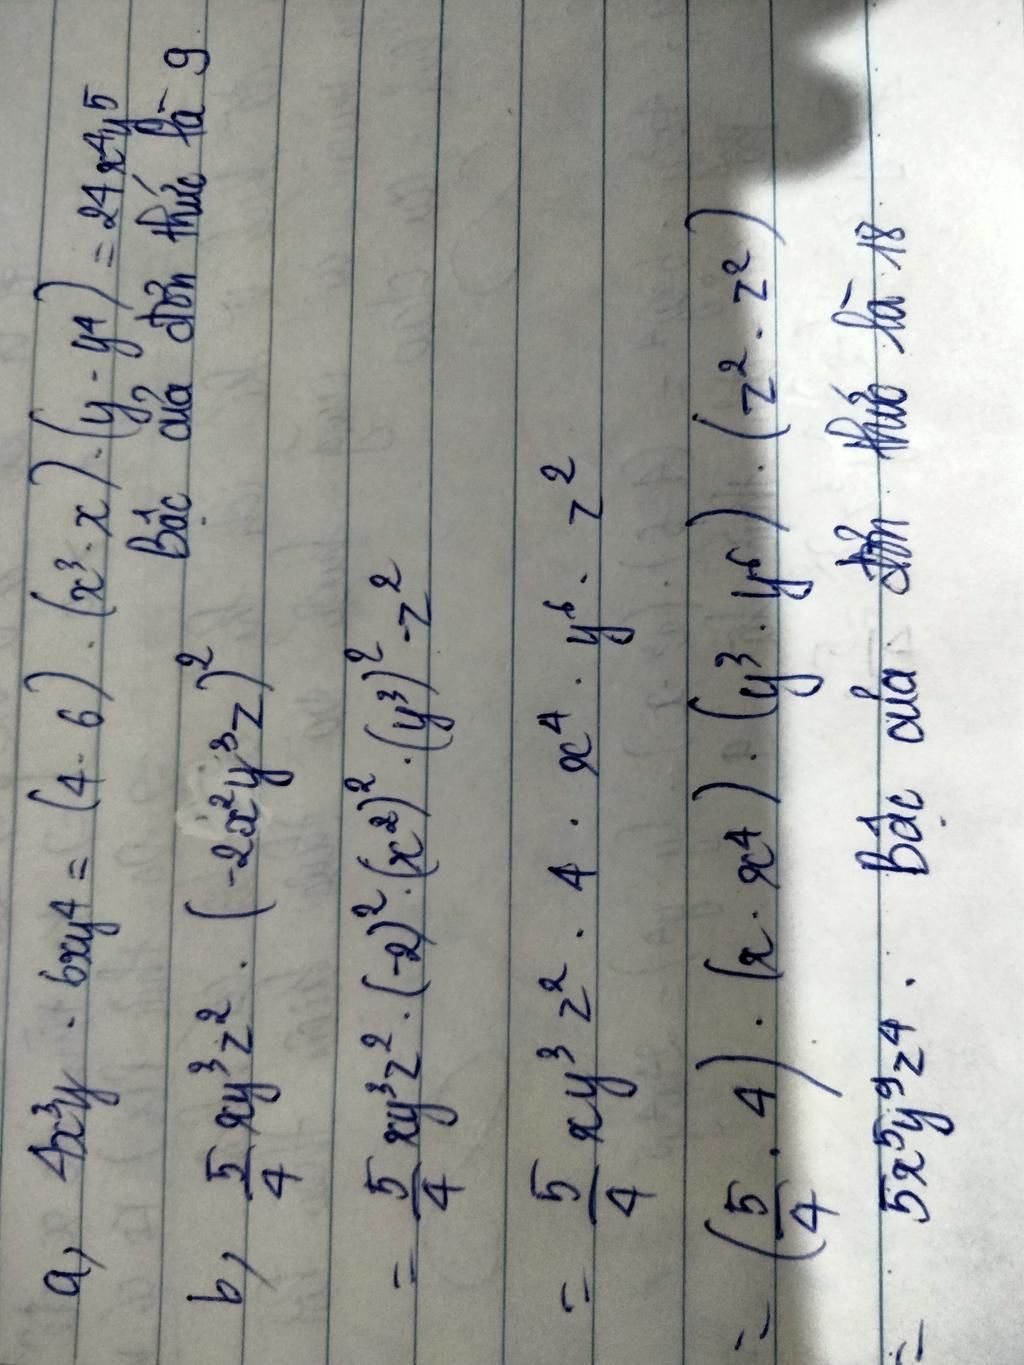 a, 4x³y · 6xy⁴ = (4 · 6) · (x³ · x) · (y · y⁴) = 24x⁴y⁵
Bậc của đơn thức là 9
b, 5/4 xy³z² · (-2x²y³z)²
= 5/4 xy³z² · (-2)² · (x²)² · (y³)² · z²
= 5/4 xy³z² · 4 · x⁴ · y⁶ · z²
= (5/4 · 4) · (x · x⁴) · (y³ · y⁶) · (z² · z²)
= 5x⁵y⁹z⁴. Bậc của đơn thức là 18